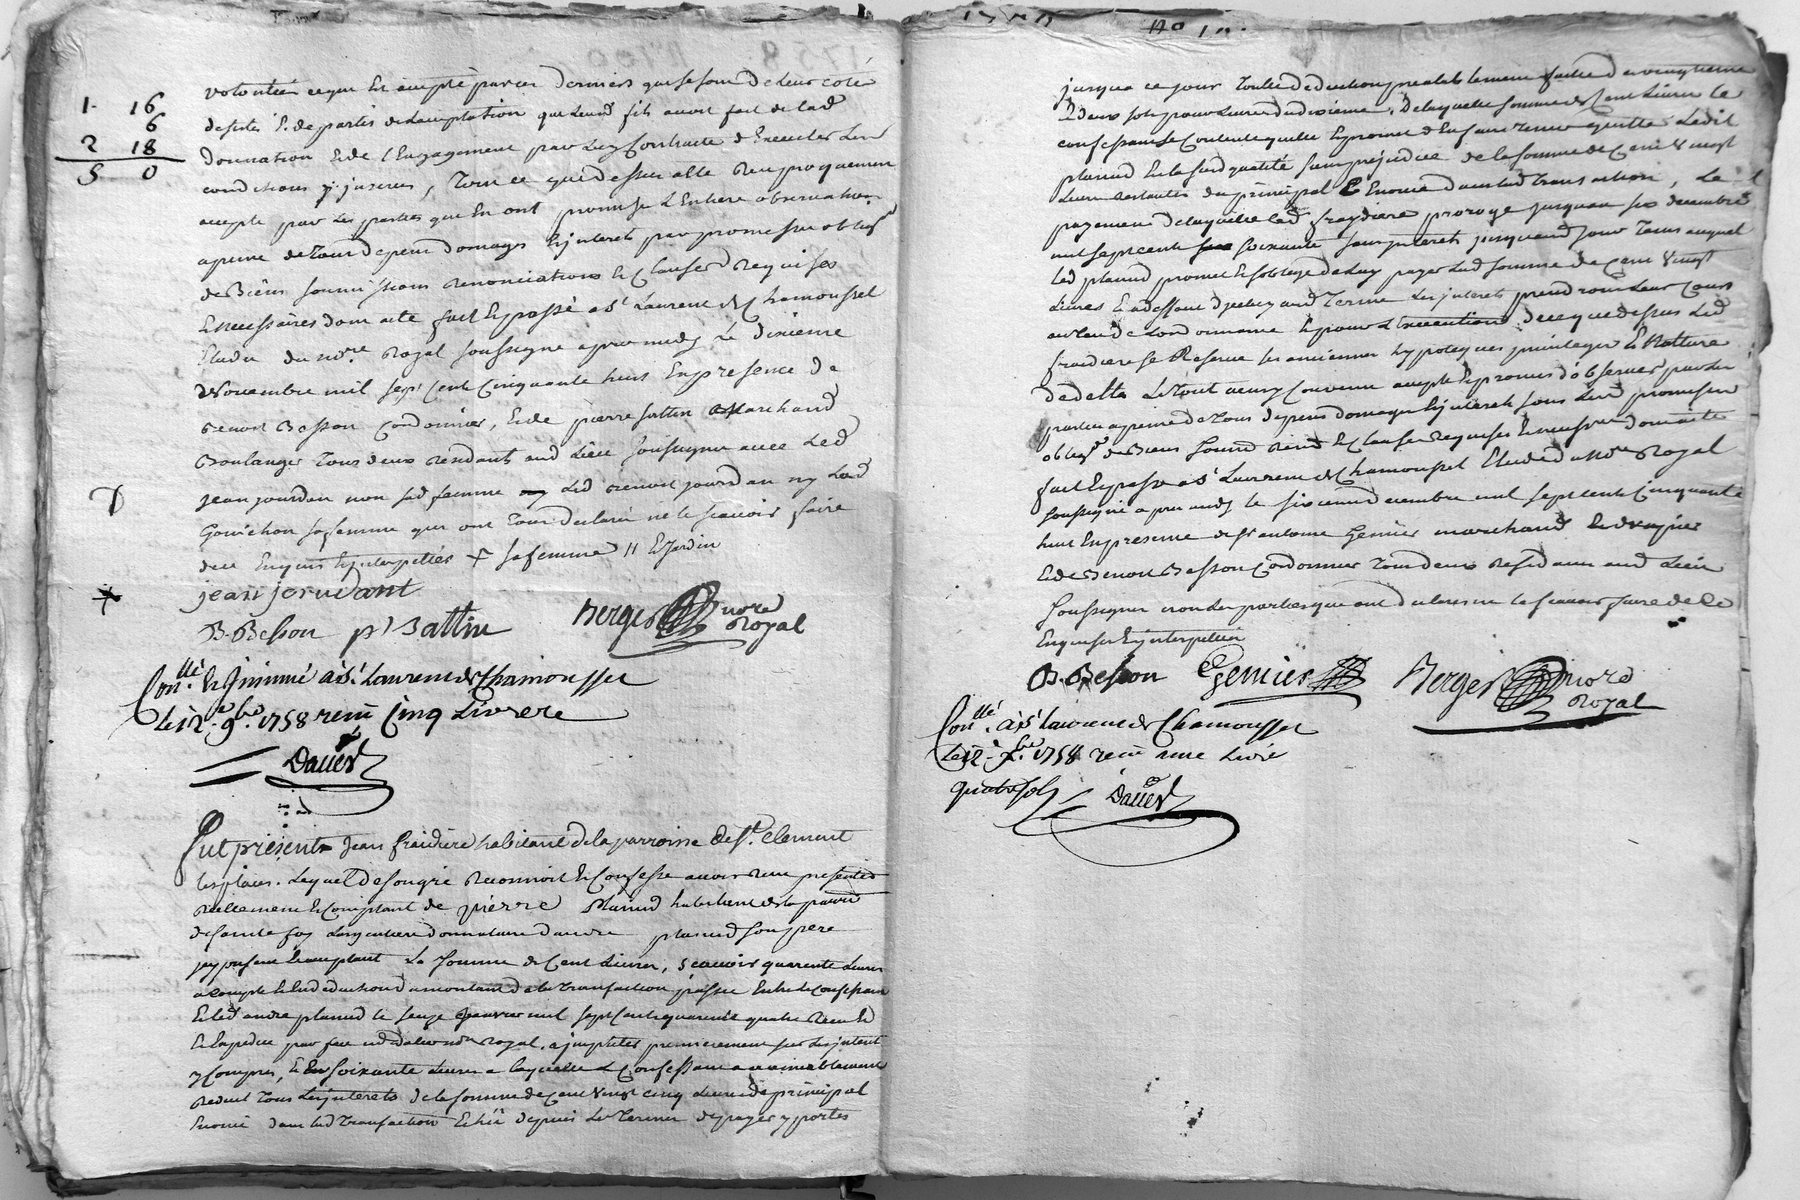 1. 16
6
2 18
5 0
volontés ce que est accepté par ces derniers que se font de leur coté
desistés & departis de l'acceptation que leurd fils avoit fait de lad
donnation & de l'engagement par luy contracté d'executer les
conditions y inserées, tout ce que dessus a été reciproquement
accepté par les parties que en ont promis l'entiere observation
a peine de tous depens domages & interets par promesse oblig
de biens soumissions renonciations & clauses requises
& necessaires dont acte fait & passé a St Laurent de Chamousset
Etude du nore Royal soussigné apres midy le dixieme
Novembre mil sept cent cinquante huit en presence de
Benoit Besson cordonnier, & de pierre Battin Marchand
Boulanger tous deux residants aud lieu soussignés avec led
jean jourdan non sad femme ny led Benoit jourdan ny lad
Gouichon sa femme que ont tous declaré ne le scavoir faire
de ce enquis & interpellés + sa femme // & Jardin
jean jorudant
B. Besson p. Battin Berger nore Royal
Conllé & Insinué à St Laurent de Chamousset
le 12e 9bre 1758 reçu Cinq Livres
Dauer
Fut présent Jean fraidiere habitant de la parroisse de St. Clement
les places. Lequel de son gré reconnoit & confesse avoir reçu presentement
reellement & comptant de pierre Planud habitant de la parre
de sainte foy Largentiere donnataire d'andre planud son pere
icy present & acceptant La somme de Cent Livres, scavoir quarente Livres
a compte & en deduction du montant de la transaction passée entre le confessant
& led andre planud le seize Janvier mil sept cent quarente quatre reçue
& expediée par feu nore Royal, a imputer premierement sur les interets
y compris, & en soixante Livres a laquelle le confessant a amiablement
reduit tous les interets de la somme de cent vingt cinq Livres de principal
enoncé dans lad transaction echû depuis les termes de payer y portés
jusqua ce jour toutte deduction prealablement faitte du vingtieme
& deux sols pour Livre du dixieme, de laquelle somme de Cent Livres le
confessant se contente quitte & promet d'en faire tenir quitte Ledit
planud en lasusd qualité sans prejudice de la somme de Cent & vingt
Livres restantes du principal enoncé dans lad transaction, le
payement de laquelle led fraydiere proroge jusquau six decembre
mil sept cents soixante sans interets jusquaud jour tems auquel
led planud promet & s'oblige de luy payer lad somme de Cent vingt
livres & a deffaut dud terme les interets prendront leur cours
au taux de L'ordonnance & pour L'execution de ce que dessus led
fraidiere se reserve les anciennes hypoteques privileges & nature
de dette Le tout ainsy convenu accepté & promis d'observer par les
parties a peine de tous depens domages & interets sous leurs promesses
oblign de biens soumn renon & clauses requises & necessres dont acte
fait & passé a St Laurent de Chamousset Etude du nore Royal
soussigné apres midy le sixieme decembre mil sept cents cinquante
huit en presence de sr antoine Genier marchand
& de Benoit Besson Cordonnier tous deux residants aud Lieu
soussignés non les parties que ont declaré ne le scavoir faire de ce
enquises & interpellées
B. Besson Genier Berger nore Royal
Conllé à St Laurent de Chamousset
le 12e Xbre 1758 reçu une Livre
quatre sols Dauer